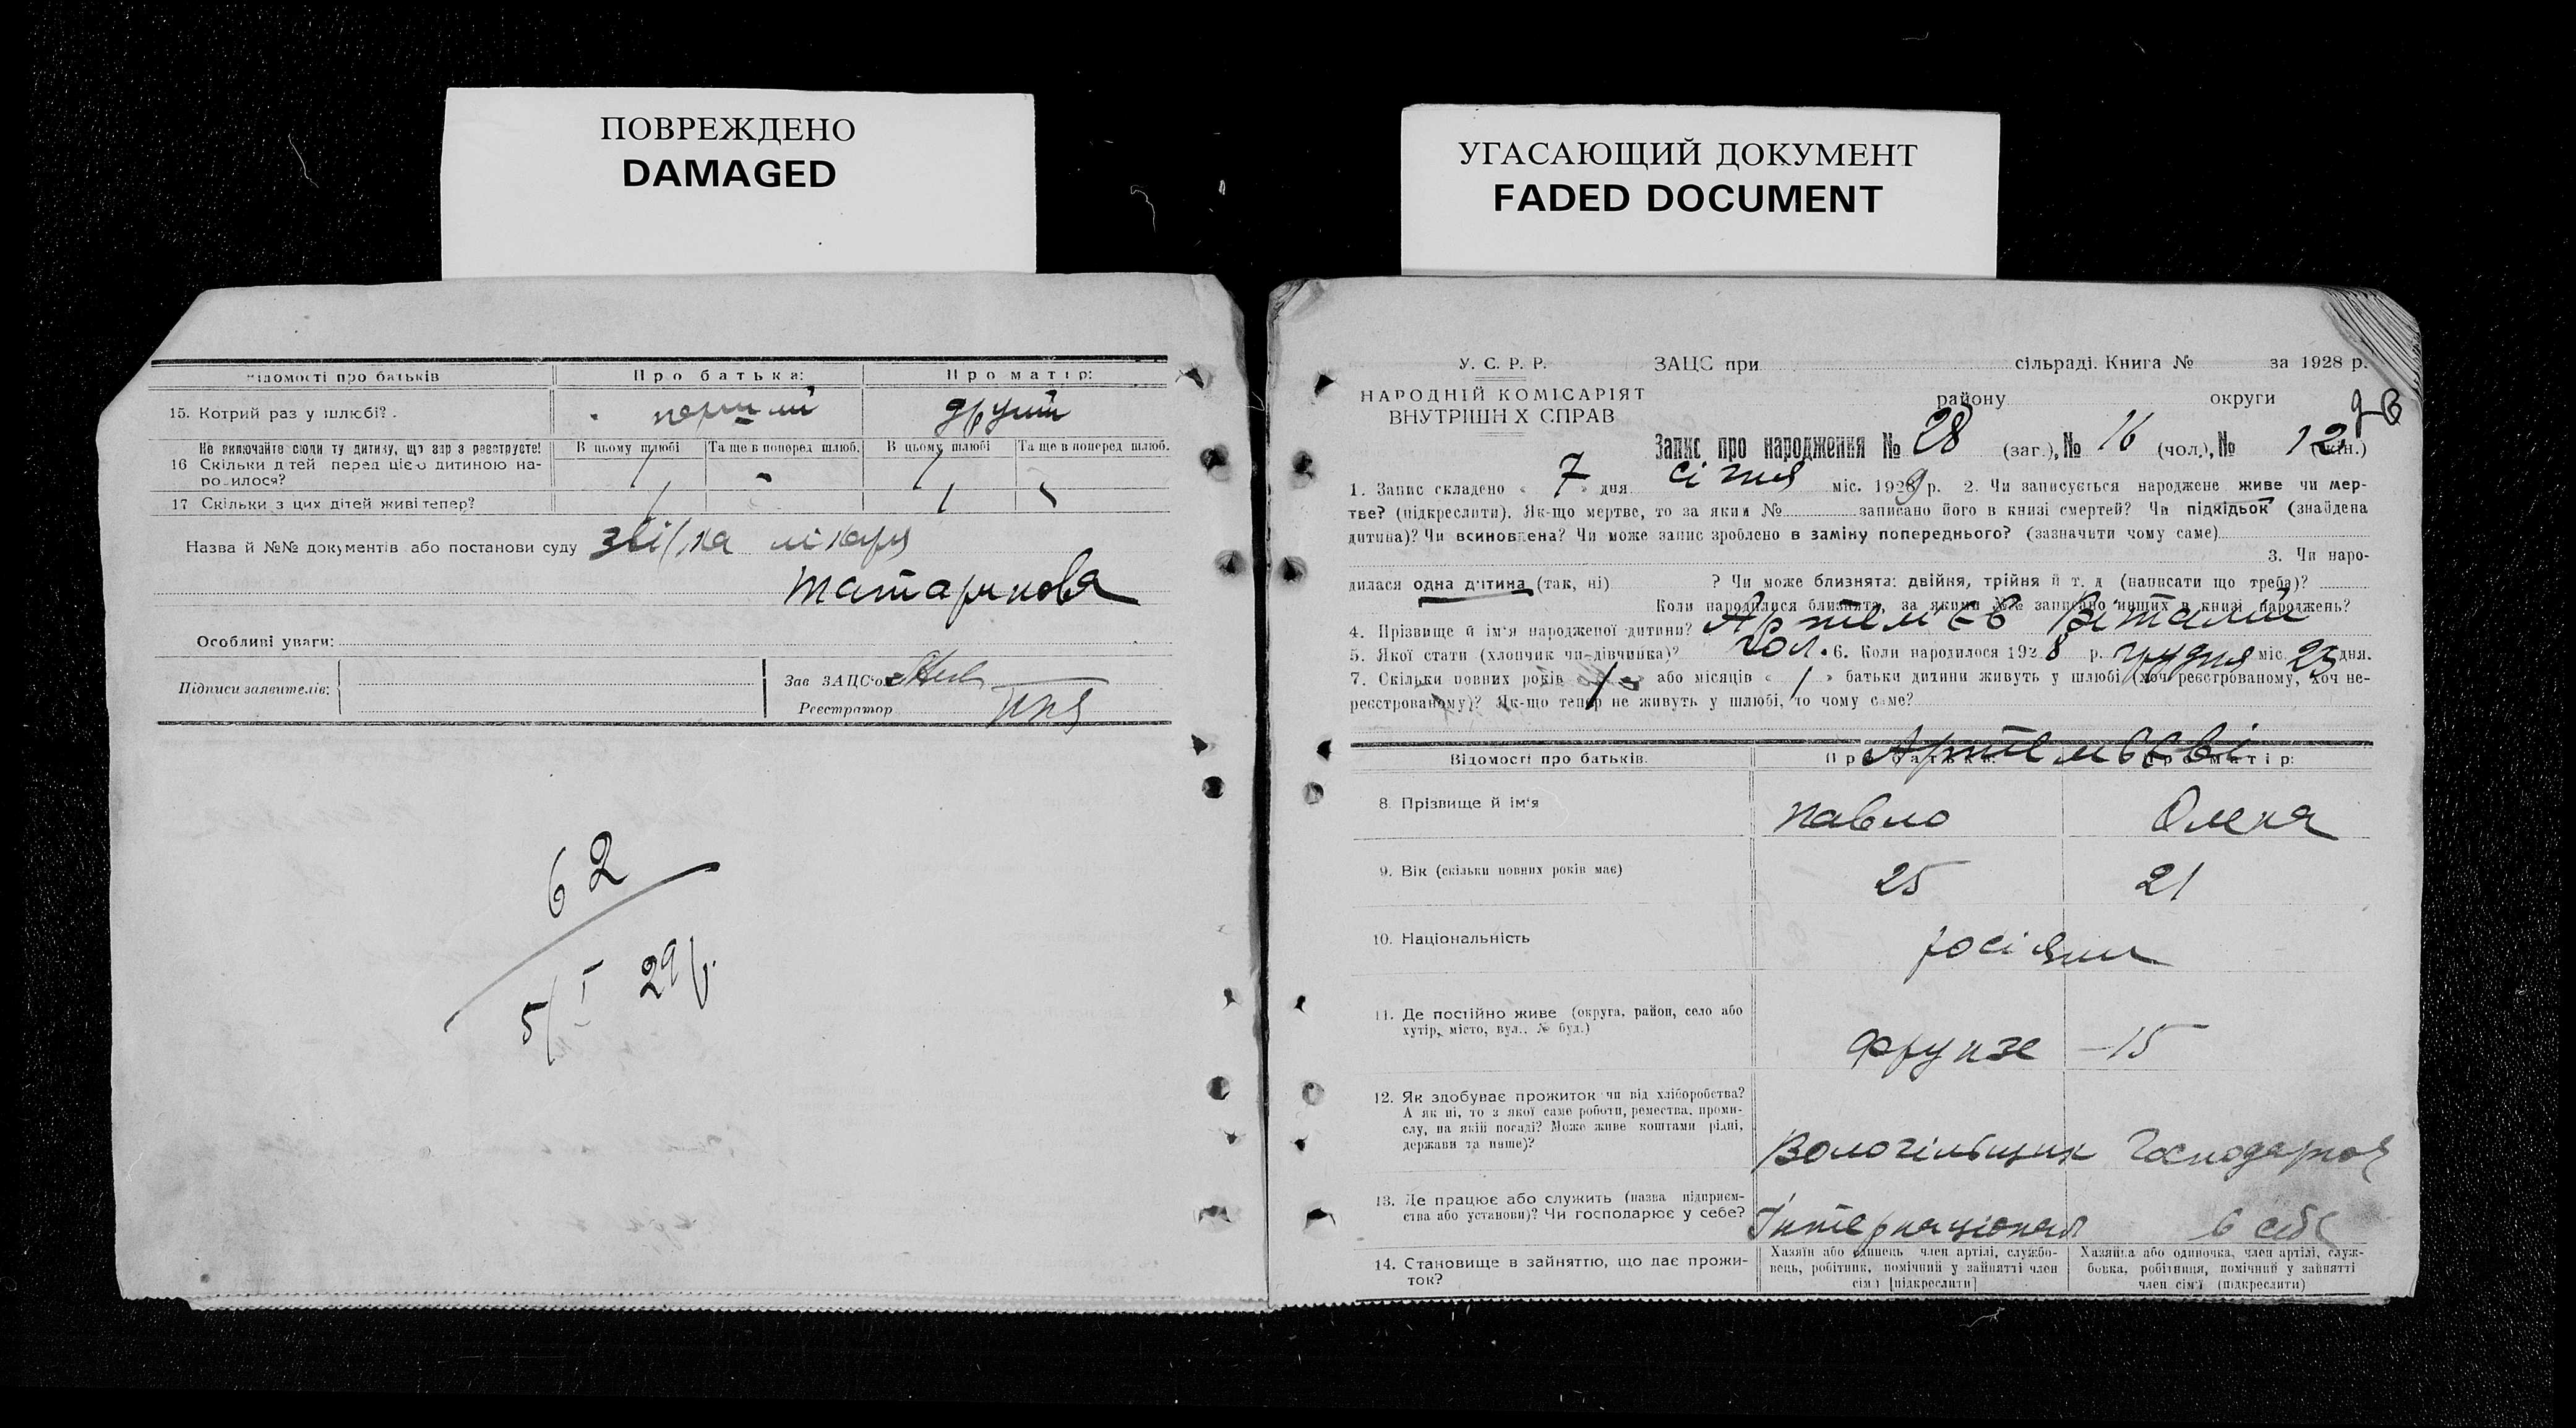 ПОВРЕЖДЕНО
DAMAGED
Відомості про батьків
Про батька:
Про матір:
15. Котрий раз у шлюбі?
перший
другий
Не включайте сюди ту дитину, що зар з реєструєте!
16 Скільки дітей перед цією дитиною на-
родилося?
В цьому шлюбі
Та ще в поперед шлюб.
В цьому шлюбі
Та ще в поперед шлюб.
1 - 1
17 Скільки з цих дітей живі тепер?
1 1
Назва й №№ документів або постанови суду лікаря
Татаринова
Особливі уваги:
Підписи заявителів:
Зав ЗАЦС'ом
Реєстратор
62
5/I 29 р.
УГАСАЮЩИЙ ДОКУМЕНТ
FADED DOCUMENT
У. С. Р. Р.
НАРОДНІЙ КОМІСАРІЯТ
ВНУТРІШНІХ СПРАВ
ЗАЦС при сільраді. Книга № за 1928 р.
району округи
Запис про народження № 28 (заг.), № 16 (чол.), № 12 (жін.)
1. Запис складено « 7 » дня січня міс. 1929 р. 2. Чи записується народжене живе чи мер-
тве? (підкреслити). Як-що мертве, то за яким № записано його в книзі смертей? Чи підкідьок (знайдена
дитина)? Чи всиновлена? Чи може запис зроблено в заміну попереднього? (зазначити чому саме)
3. Чи наро-
дилася одна дитина (так, ні) ? Чи може близнята: двійня, трійня й т. д (написати що треба)?
Коли народилися близнята, за якими №№ записано инших в книзі народжень?
4. Прізвище й ім'я народженої дитини? Артемьєв Віталий
5. Якої стати (хлопчик чи дівчинка)? чол. 6. Коли народилося 1928 р. грудня міс. 23 дня.
7. Скільки повних років 1 або місяців « » батьки дитини живуть у шлюбі (хоч реєстрованому, хоч не-
реєстрованому)? Як-що тепер не живуть у шлюбі, то чому саме?
Артемьєві
Відомості про батьків.
Про батька:
Про матір:
8. Прізвище й ім'я
Павло
Олена
9. Вік (скільки повних років має)
25
21
10. Національність
росіяни
11. Де постійно живе (округа, район, село або
хутір, місто, вул., № буд.)
Фрунзе - 15
12. Як здобуває прожиток чи від хліборобства?
А як ні, то з якої саме роботи, ремества, проми-
слу, на якій посаді? Може живе коштами рідні,
держави та инше)?
Волочільщик
Господарює
13. Де працює або служить (назва підприєм-
ства або установи)? Чи господарює у себе?
Інтернаціонал
в себе
14. Становище в зайняттю, що дає прожи-
ток?
Хазяїн або одинець член артілі, службо-
вець, робітник, помічний у зайнятті член
сім'ї [підкреслити]
Хазяйка або одиночка, член артілі, служ-
бовка, робітниця, помічний у зайнятті
член сім'ї (підкреслити)